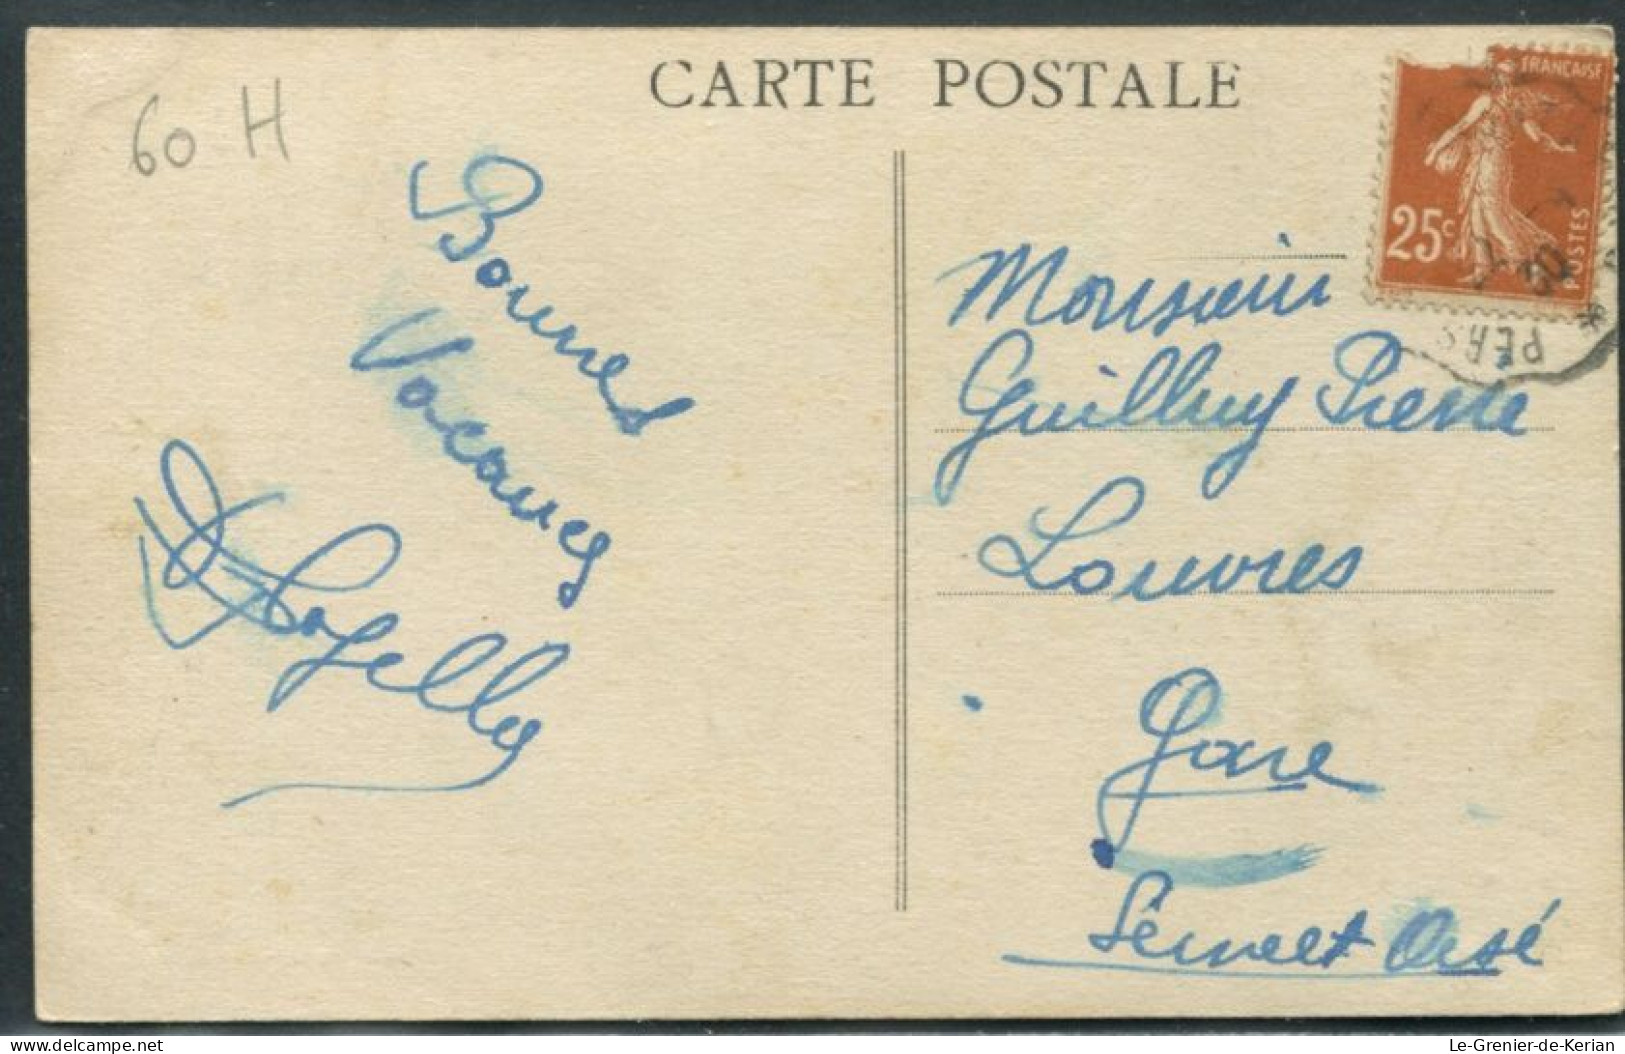 CARTE POSTALE
60 H
Bonnes
Vacances
FRANCAISE
25c
POSTES
30
PERS
Monsieur
Guilluy Pierre
Louvres
Gare
Seine et Oise
Le-Grenier-de-Kerian